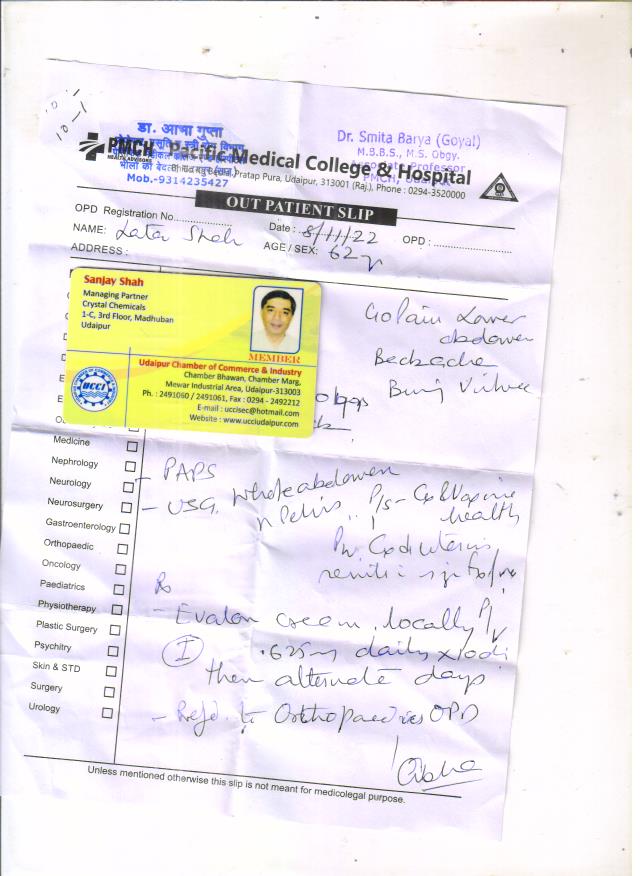 10-1
डा. आभा गुप्ता
Mob.-9314235427
Dr. Smita Barya (Goyal)
M.B.B.S., M.S. Obgy.
Associate Professor
PMCH, Udaipur
PMCH Pacific Medical College & Hospital
Pratap Pura, Udaipur, 313001 (Raj.), Phone : 0294-3520000
OUT PATIENT SLIP
OPD Registration No.
Date : 8/11/22
OPD :
NAME: Lata Shah
AGE / SEX: 62 y
ADDRESS :
Sanjay Shah
Managing Partner
Crystal Chemicals
1-C, 3rd Floor, Madhuban
Udaipur
MEMBER
UCCI
Udaipur Chamber of Commerce & Industry
Chamber Bhawan, Chamber Marg,
Mewar Industrial Area, Udaipur-313003
Ph. : 2491060 / 2491061, Fax : 0294 - 2492212
E-mail : uccisec@hotmail.com
Website : www.ucciudaipur.com
C/o Pain Lower
abdomen
Backache
Medicine
Nephrology
Neurology
Neurosurgery
Gastroenterology
Orthopaedic
Oncology
Paediatrics
Physiotherapy
Plastic Surgery
Psychitry
Skin & STD
Surgery
Urology
- PAPS
- USG. Whole abdomen
n Pelvis
P/s - Cx & Vagina
health
Rx
- Evalon cream locally P/V
I .625mg daily x 10 d
then alternate days
- Refd. to Orthopaedics OPD
Abha
Unless mentioned otherwise this slip is not meant for medicolegal purpose.